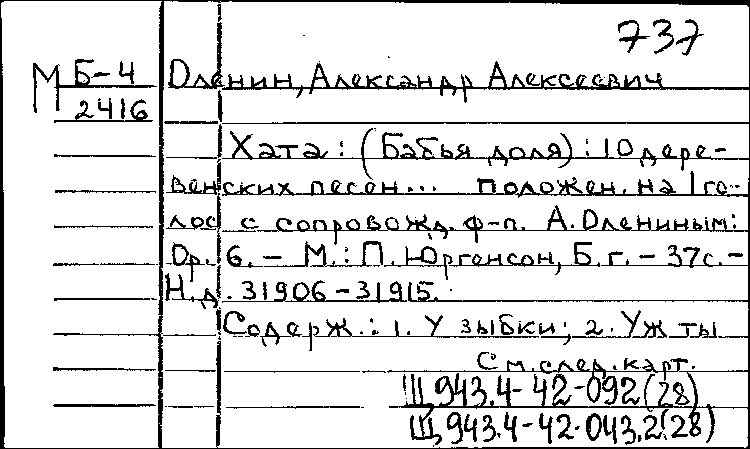 737
М Б-4 Оленин, Александр Алексеевич
2416
Хата: (Бабья доля): 10 дере-
венских песен... положен. на 1 го-
лос с сопровожд. ф-п. А. Олениным:
Ор. 6. - М.: П. Юргенсон, Б.г. - 37с. -
Н.д. 31906-31915.
Содерж.: 1. У зыбки; 2. Уж ты
См. след. карт.
Щ943.4-42-092(28)
Щ943.4-42-043.2(28)